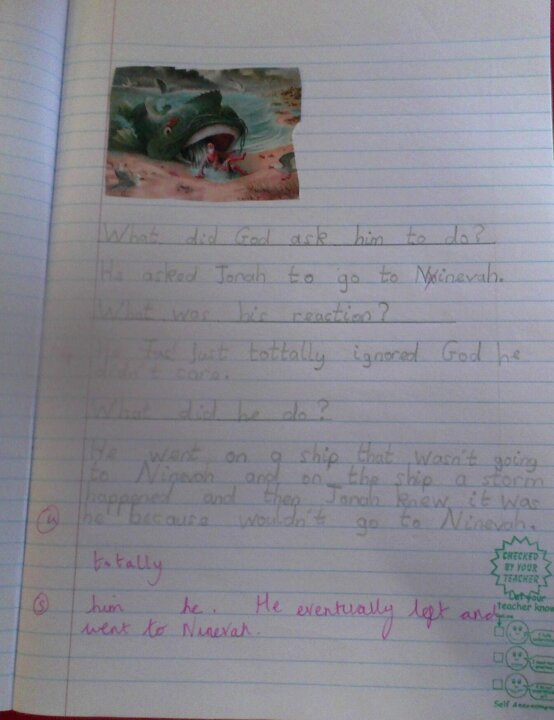 What did God ask him to do?
He asked Jonah to go to Ninevah.
What was his reaction?
He Just tottally ignored God he
didn't care.
What did he do?
He went on a ship that wasn't going
to Ninevah and on the ship a storm
happened and then Jonah knew it was
he because wouldn't go to Ninevah.
totally
him he. He eventually left and
went to Ninevah.
CHECKED
BY YOUR
TEACHER
Let your
Teacher know
Self Assessment